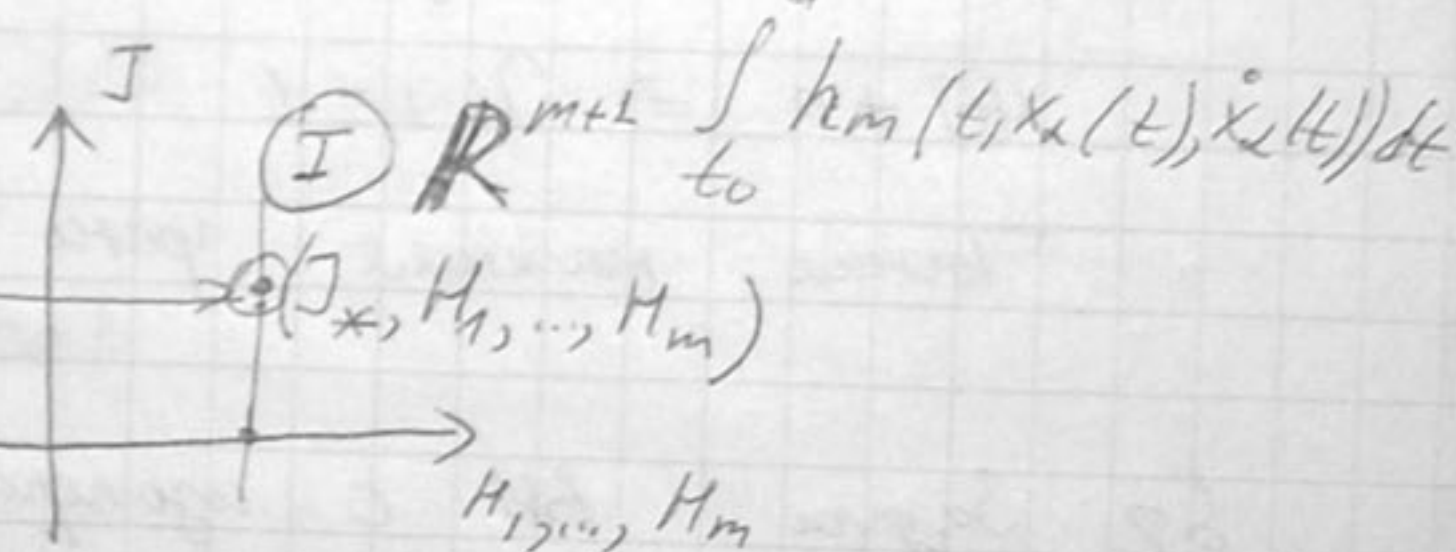 J
I ℝ^{m+1} ∫_{t₀} h_m(t, x_α(t), ẋ_α(t))dt
(J_*, H₁, ..., H_m)
H₁, ..., H_m